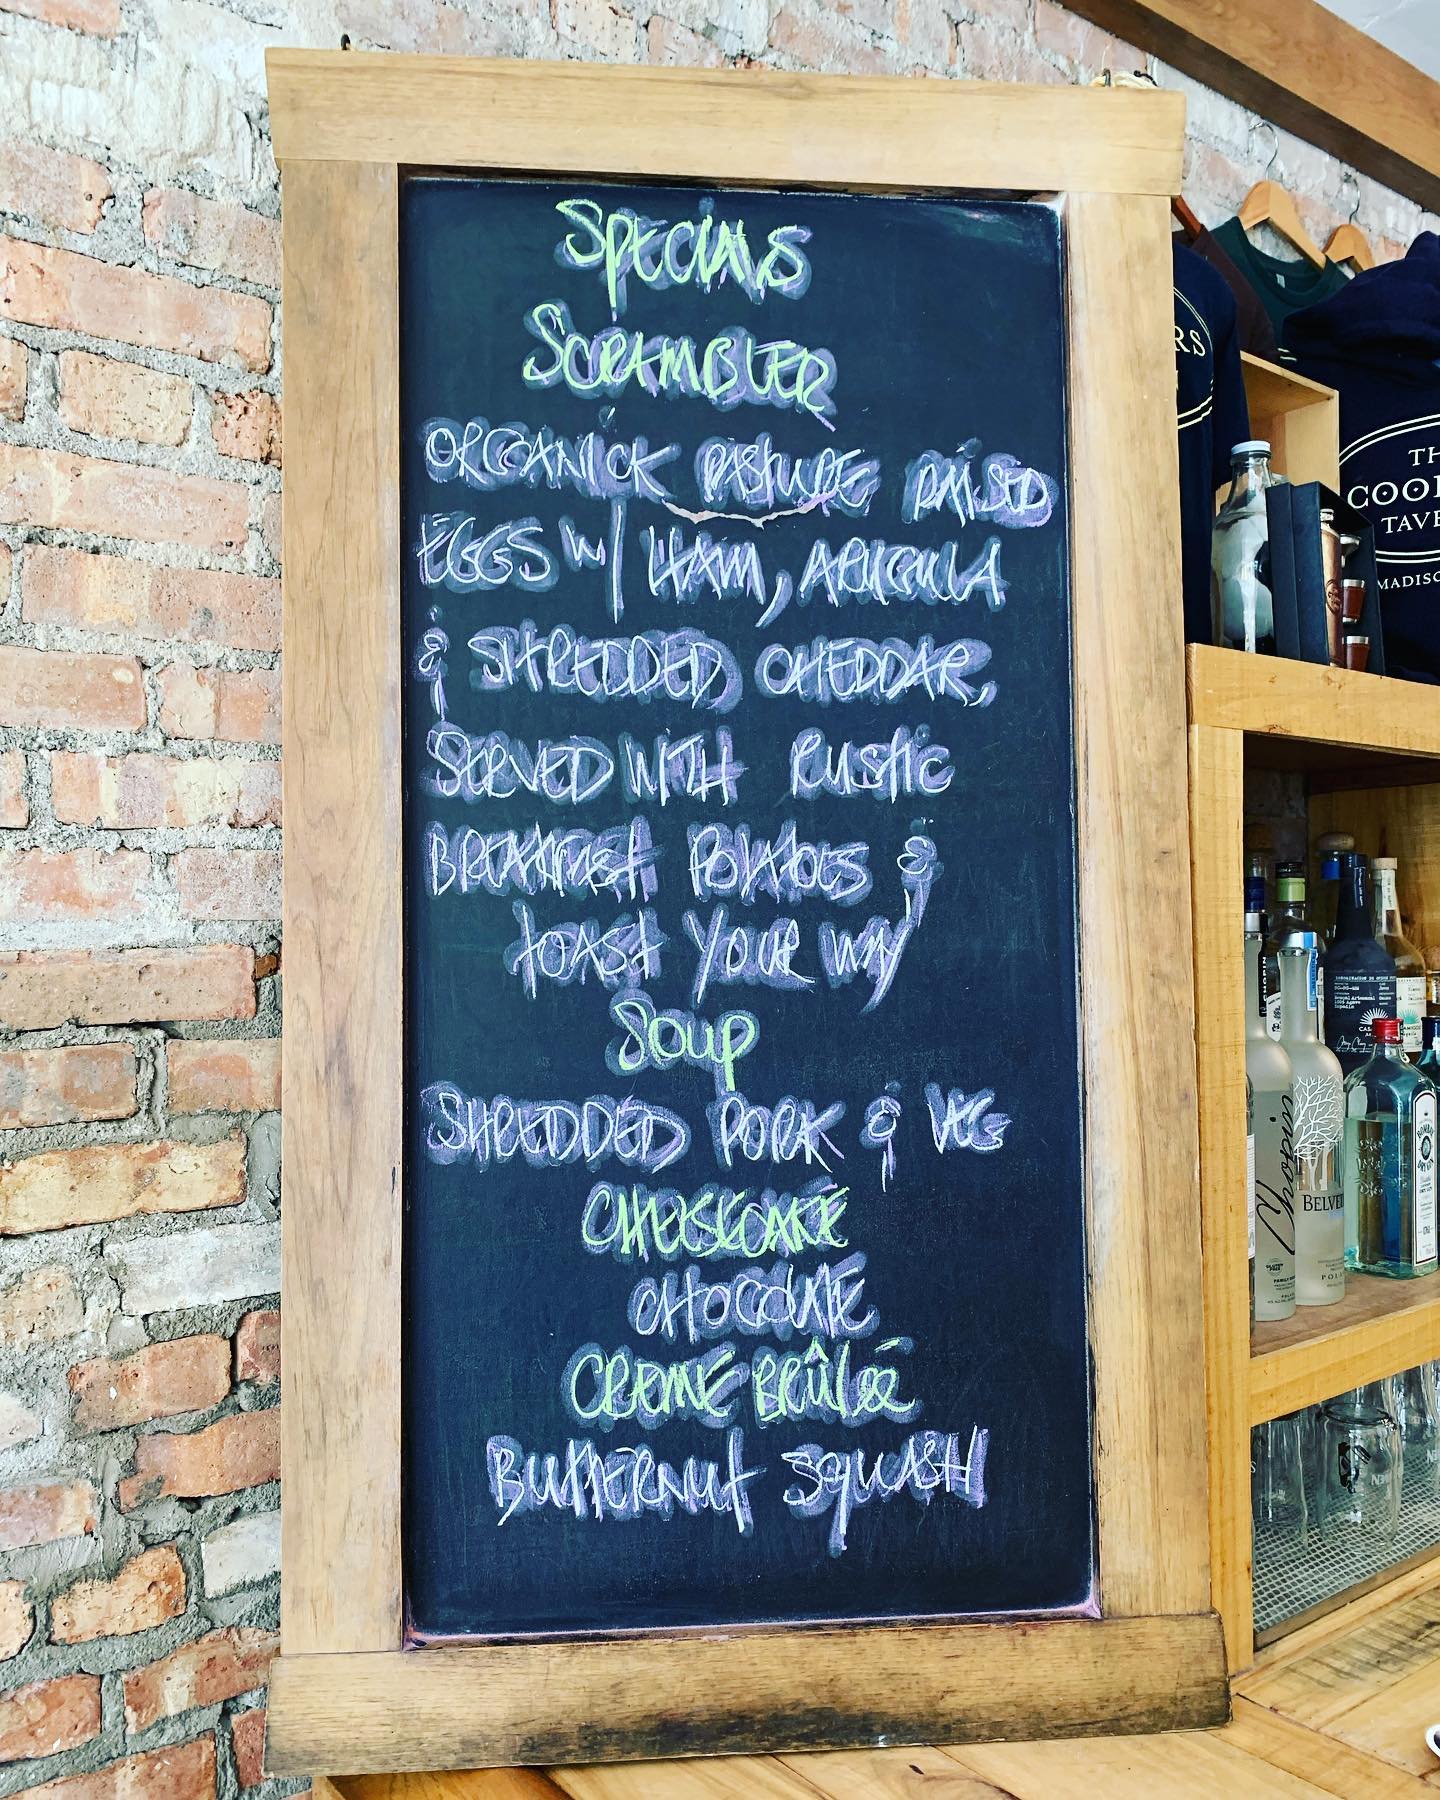 Specials
Scrambler
ORGANICK PASTURE RAISED
EGGS W/ HAM, ARUGULA
& SHREDDED CHEDDAR,
SERVED WITH RUSTIC
BREAKFAST POTATOES &
TOAST YOUR WAY
Soup
SHREDDED PORK & VEG
CHEESECAKE
CHOCOLATE
CREME BRÛLÉE
BUTTERNUT SQUASH
RS
TH
COO
TAVE
MADISO
CHOPIN
Chopin
BELVE
POLA
BOMBAY